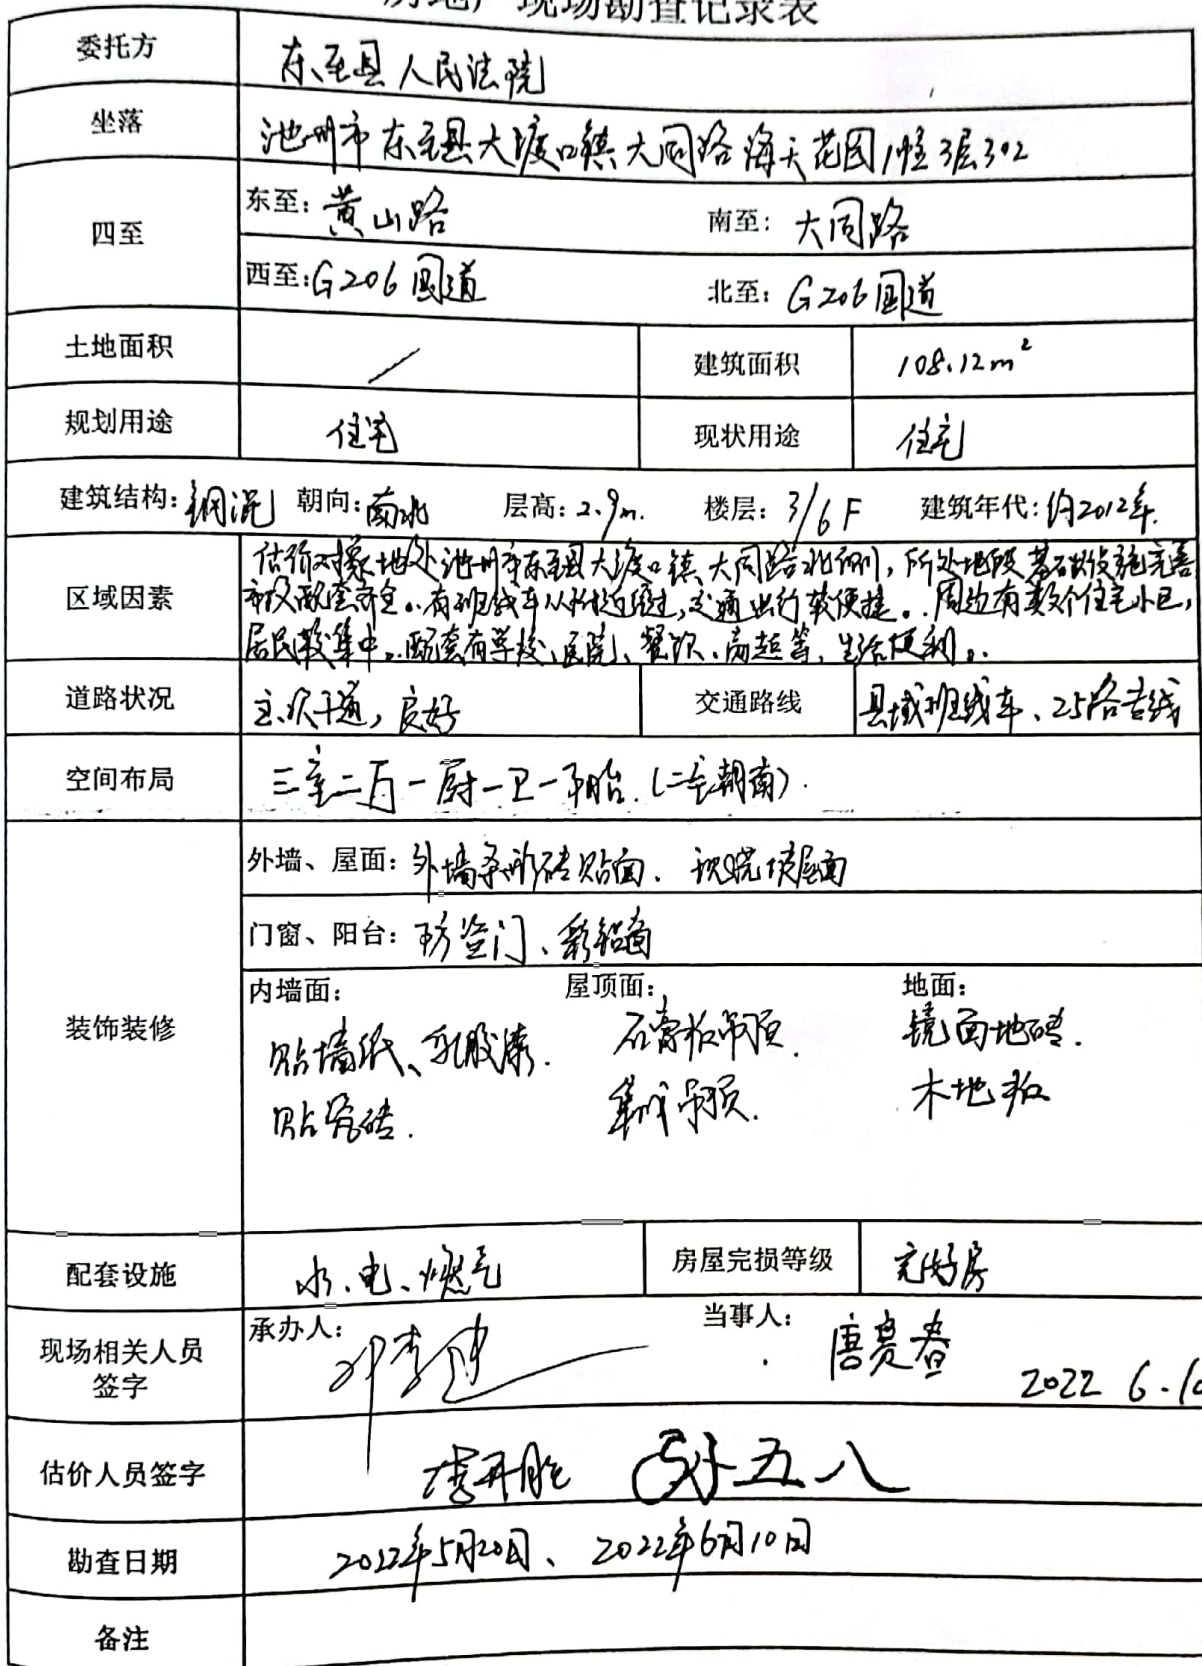 房地产现场勘查记录表
委托方 东至县人民法院
坐落 池州市东至县大渡口镇大同路海天花园1幢3层302
四至 东至：黄山路 南至：大同路
西至：G206国道 北至：G206国道
土地面积 / 建筑面积 108.12m²
规划用途 住宅 现状用途 住宅
建筑结构：钢混 朝向：南北 层高：2.9m. 楼层：3/6F 建筑年代：约2012年.
区域因素 估价对象地处池州市东至县大渡口镇大同路北侧，所处地段基础设施完善
市政配套齐全。有班线车从附近经过，交通出行较便捷。周边有多个住宅小区，
居民较集中。配套有学校、医院、餐饮、商超等，生活便利。
道路状况 主次干道，良好 交通路线 县域班线车、25路专线
空间布局 三室二厅一厨一卫一阳台.（二室朝南）.
装饰装修
外墙、屋面：外墙条形砖贴面、现浇坡屋面
门窗、阳台：防盗门、彩铝窗
内墙面： 屋顶面： 地面：
贴墙纸、乳胶漆. 石膏板吊顶. 镜面地砖.
贴瓷砖. 集成吊顶. 木地板
配套设施 水、电、燃气 房屋完损等级 完好房
现场相关人员签字 承办人： 当事人： 唐
2022 6.10
估价人员签字 李开胜 五八
勘查日期 2022年5月20日、2022年6月10日
备注